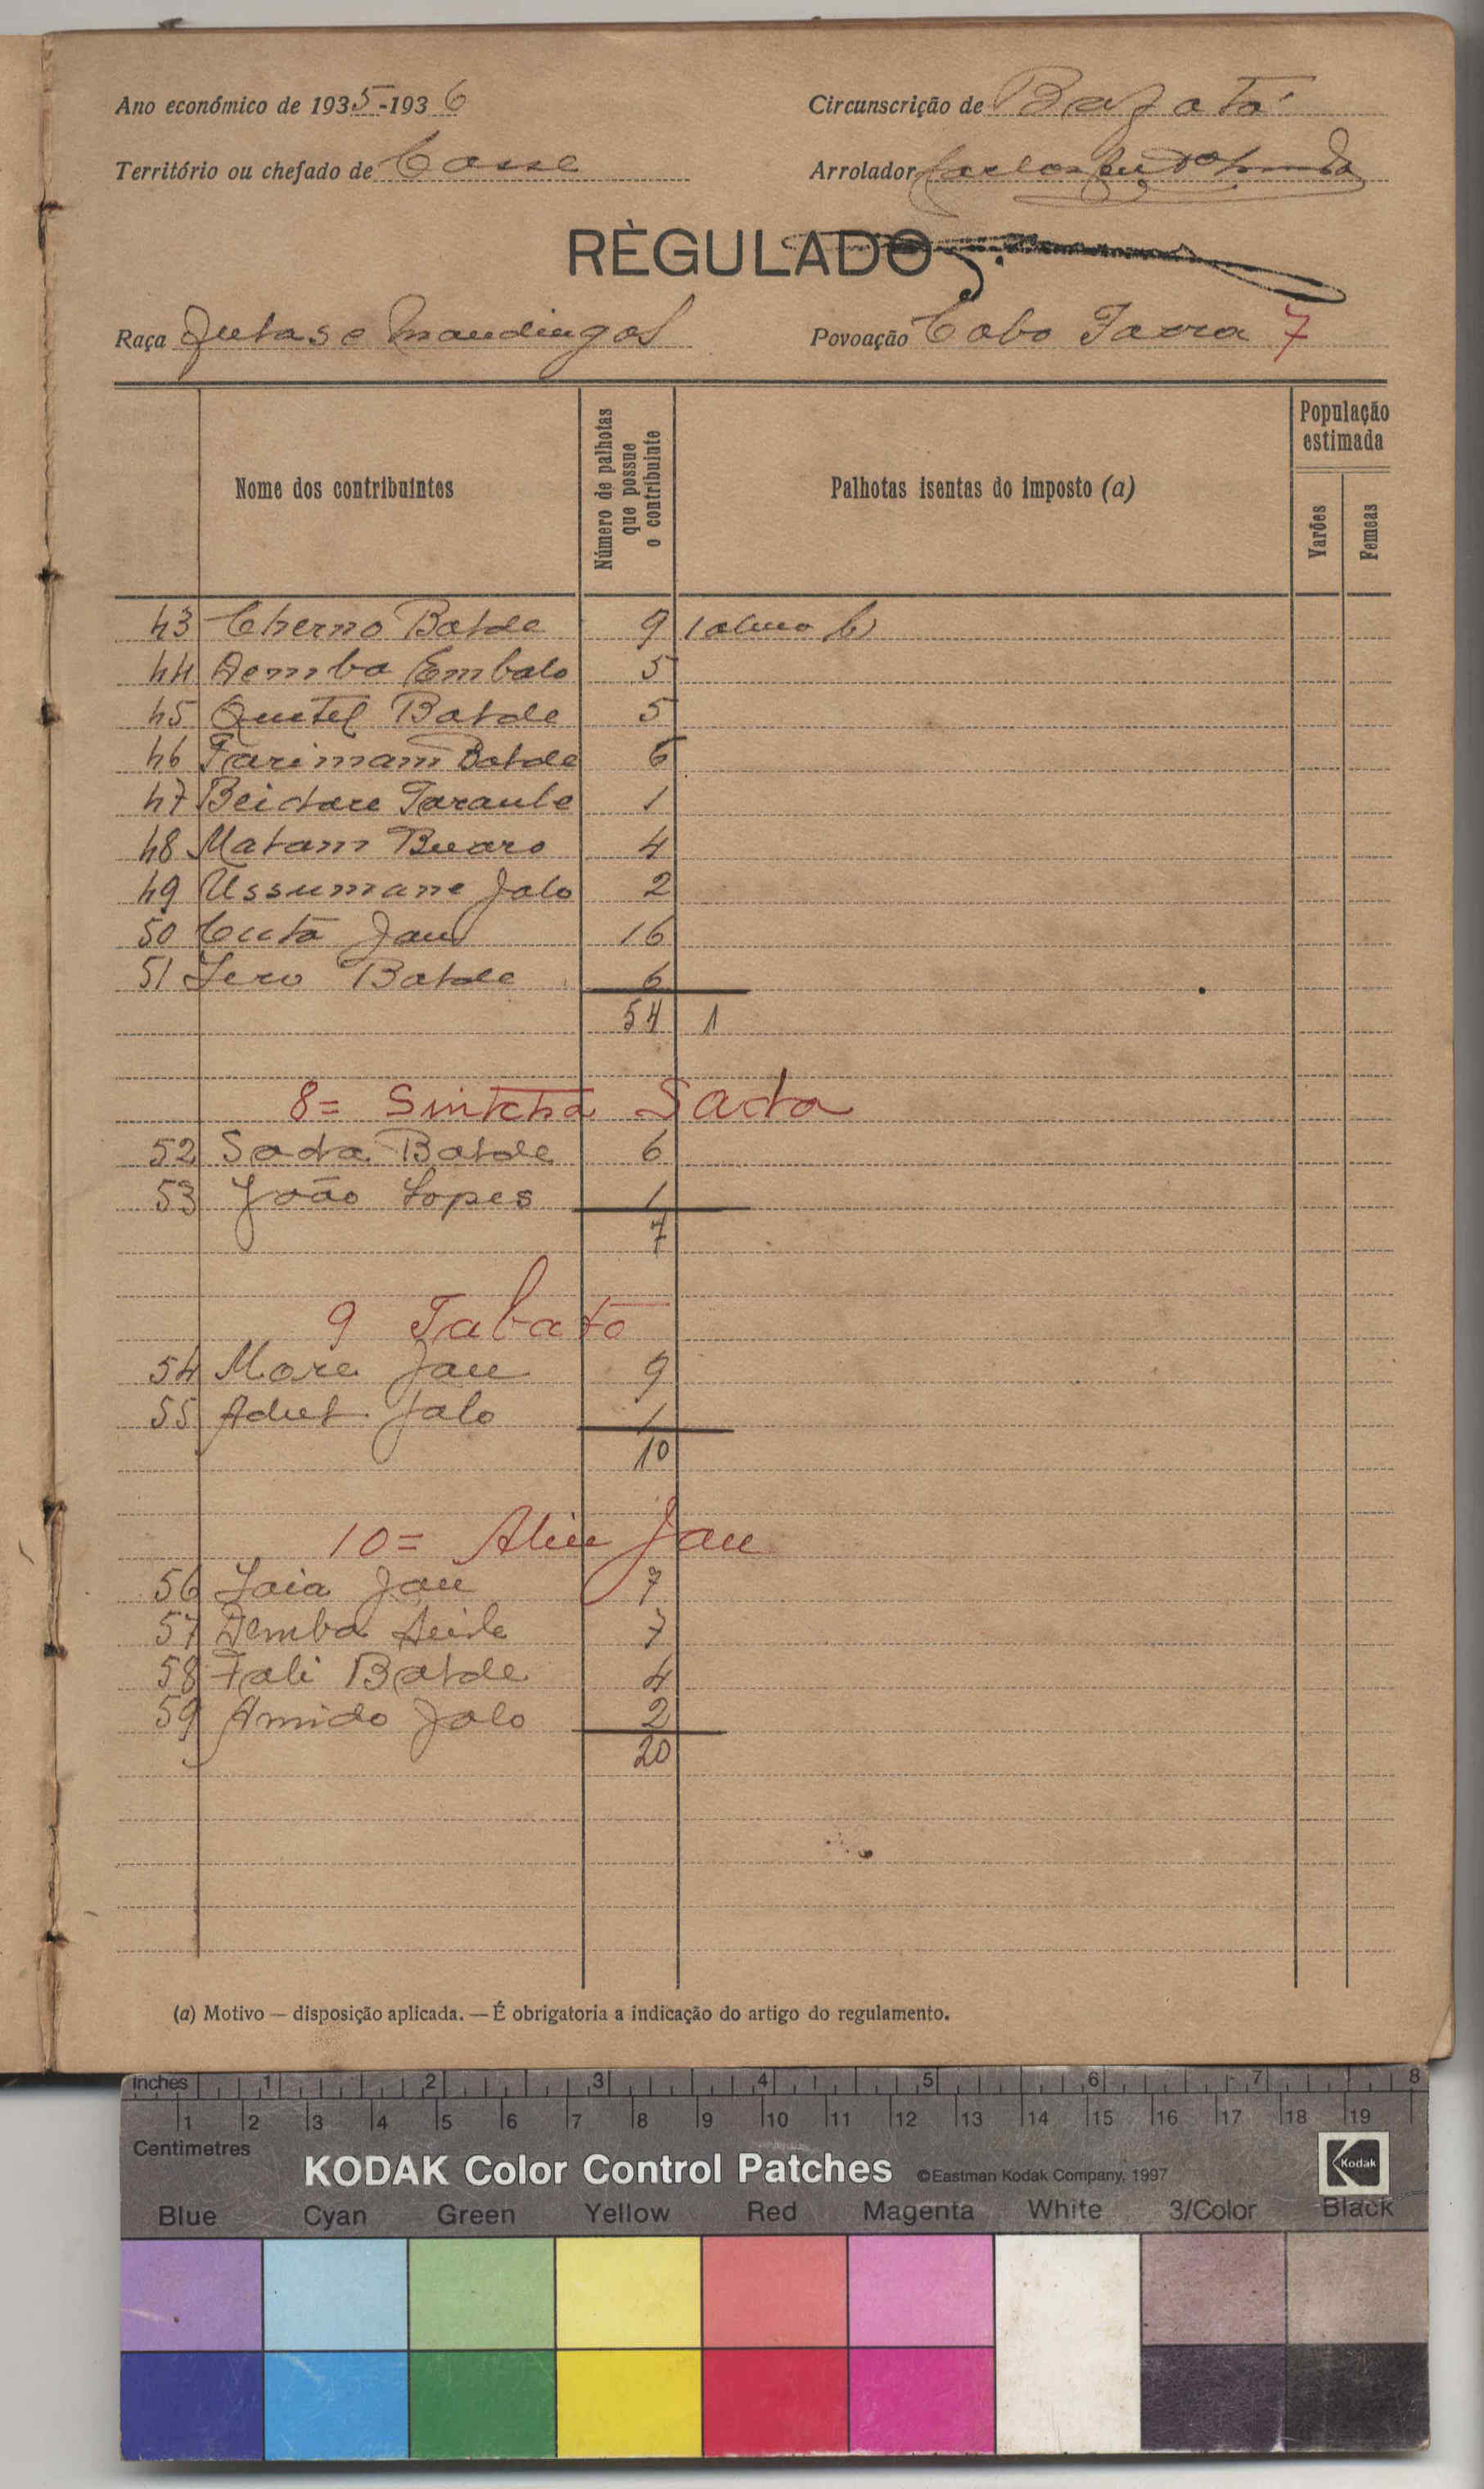 Ano económico de 1935-1936
Circunscrição de Bafatá
Território ou chefado de Cosse
Arrolador
RÈGULADO
Raça Fulas e Mandingas
Povoação Cabo Tavra 7
Nome dos contribuintes
Número de palhotas que possue o contribuinte
Palhotas isentas do imposto (a)
População estimada
Varões
Femeas
43 Cherno Balde 9 1 aluno b)
44 Demba Embalo 5
45 Quetel Balde 5
46 Farimam Balde 6
47 1
48 Matam Buaro 4
49 Ussumane Jalo 2
50 Cuta Jau 16
51 Sero Balde 6
54 1
8= Sintchã Sada
52 Sada Balde 6
53 João Lopes 1
7
9 Tabatō
54 More Jau 9
55 Adul Jalo 1
10
10= Aliu Jau
56 Laia Jau 7
57 Demba 7
58 Fali Balde 4
59 Amido Jalo 2
20
(a) Motivo — disposição aplicada. — É obrigatoria a indicação do artigo do regulamento.
inches 1 2 3 4 5 6 7 8
1 2 3 4 5 6 7 8 9 10 11 12 13 14 15 16 17 18 19
Centimetres
KODAK Color Control Patches ©Eastman Kodak Company, 1997 Kodak
Blue Cyan Green Yellow Red Magenta White 3/Color Black